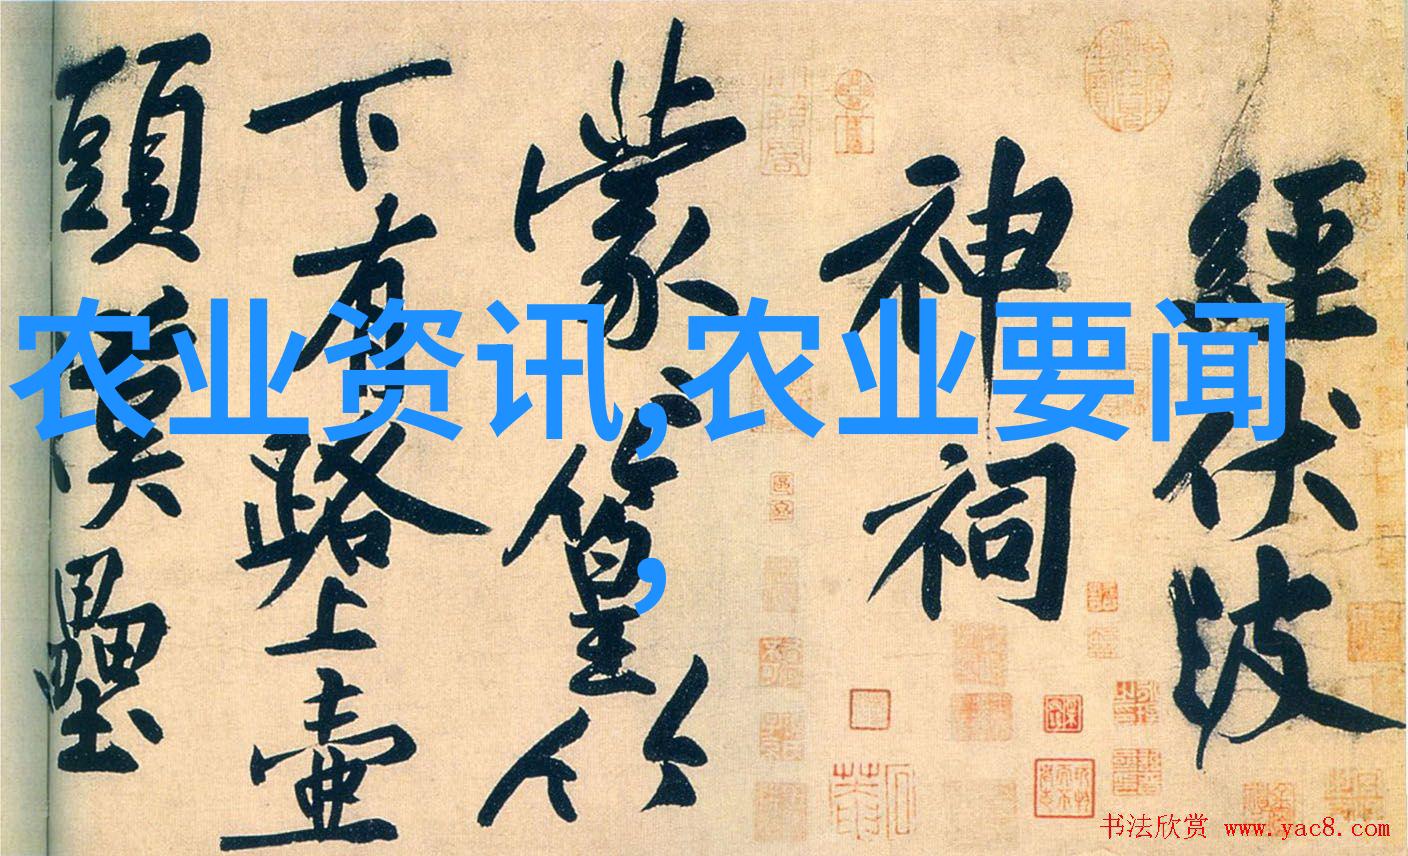 經伏波
神祠
蒙〻篁竹
下有路上壺
頭漢壘
农业资讯,农业要闻
,
书法欣赏 www.yac8.com